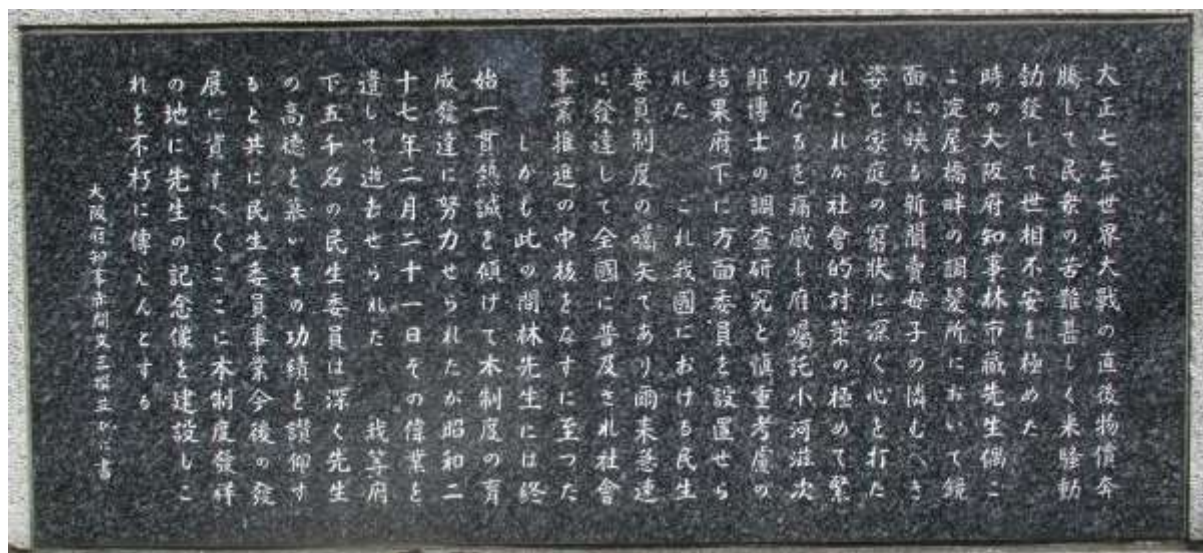 大正七年世界大戦の直後物價奔
騰して民衆の苦難甚しく米騒動
勃發して世相不安を極めた
時の大阪府知事林市藏先生偶こ
こ淀屋橋畔の調髪所において鏡
面に映る新聞賣母子の憐むべき
姿と家庭の窮状に深く心を打た
れこれが社會的対策の極めて緊
切なるを痛感し府嘱託小河滋次
郎博士の調査研究と慎重考慮の
結果府下に方面委員を設置せら
れた　これ我國における民生
委員制度の嚆矢であり爾来急速
に發達して全國に普及され社會
事業推進の中核をなすに至った
しかも此の間林先生には終
始一貫熱誠を傾けて本制度の育
成發達に努力せられたが昭和二
十七年二月二十一日その偉業を
遺して逝去せられた　我等府
下五千名の民生委員は深く先生
の高徳を慕いその功績を讃仰す
ると共に民生委員事業今後の發
展に資すべくここに本制度發祥
の地に先生の記念像を建設しこ
れを不朽に傳えんとする
大阪府知事赤間文三撰並びに書